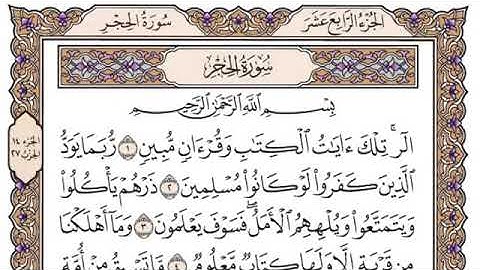 الجُزْءُ الرَّابِعَ عَشَرَ
سُورَةُ الحِجْرِ
سُورَةُ الحِجْرِ
بِسْمِ اللَّهِ الرَّحْمَٰنِ الرَّحِيمِ
الجزء ١٤
الحزب ٢٧
الٓر ۚ تِلْكَ ءَايَٰتُ ٱلْكِتَٰبِ وَقُرْءَانٍ مُّبِينٍ ١ رُّبَمَا يَوَدُّ
ٱلَّذِينَ كَفَرُوا۟ لَوْ كَانُوا۟ مُسْلِمِينَ ٢ ذَرْهُمْ يَأْكُلُوا۟
وَيَتَمَتَّعُوا۟ وَيُلْهِهِمُ ٱلْأَمَلُ ۖ فَسَوْفَ يَعْلَمُونَ ٣ وَمَآ أَهْلَكْنَا
مِن قَرْيَةٍ إِلَّا وَلَهَا كِتَابٌ مَّعْلُومٌ ٤ مَّا تَسْبِقُ مِنْ أُمَّةٍ